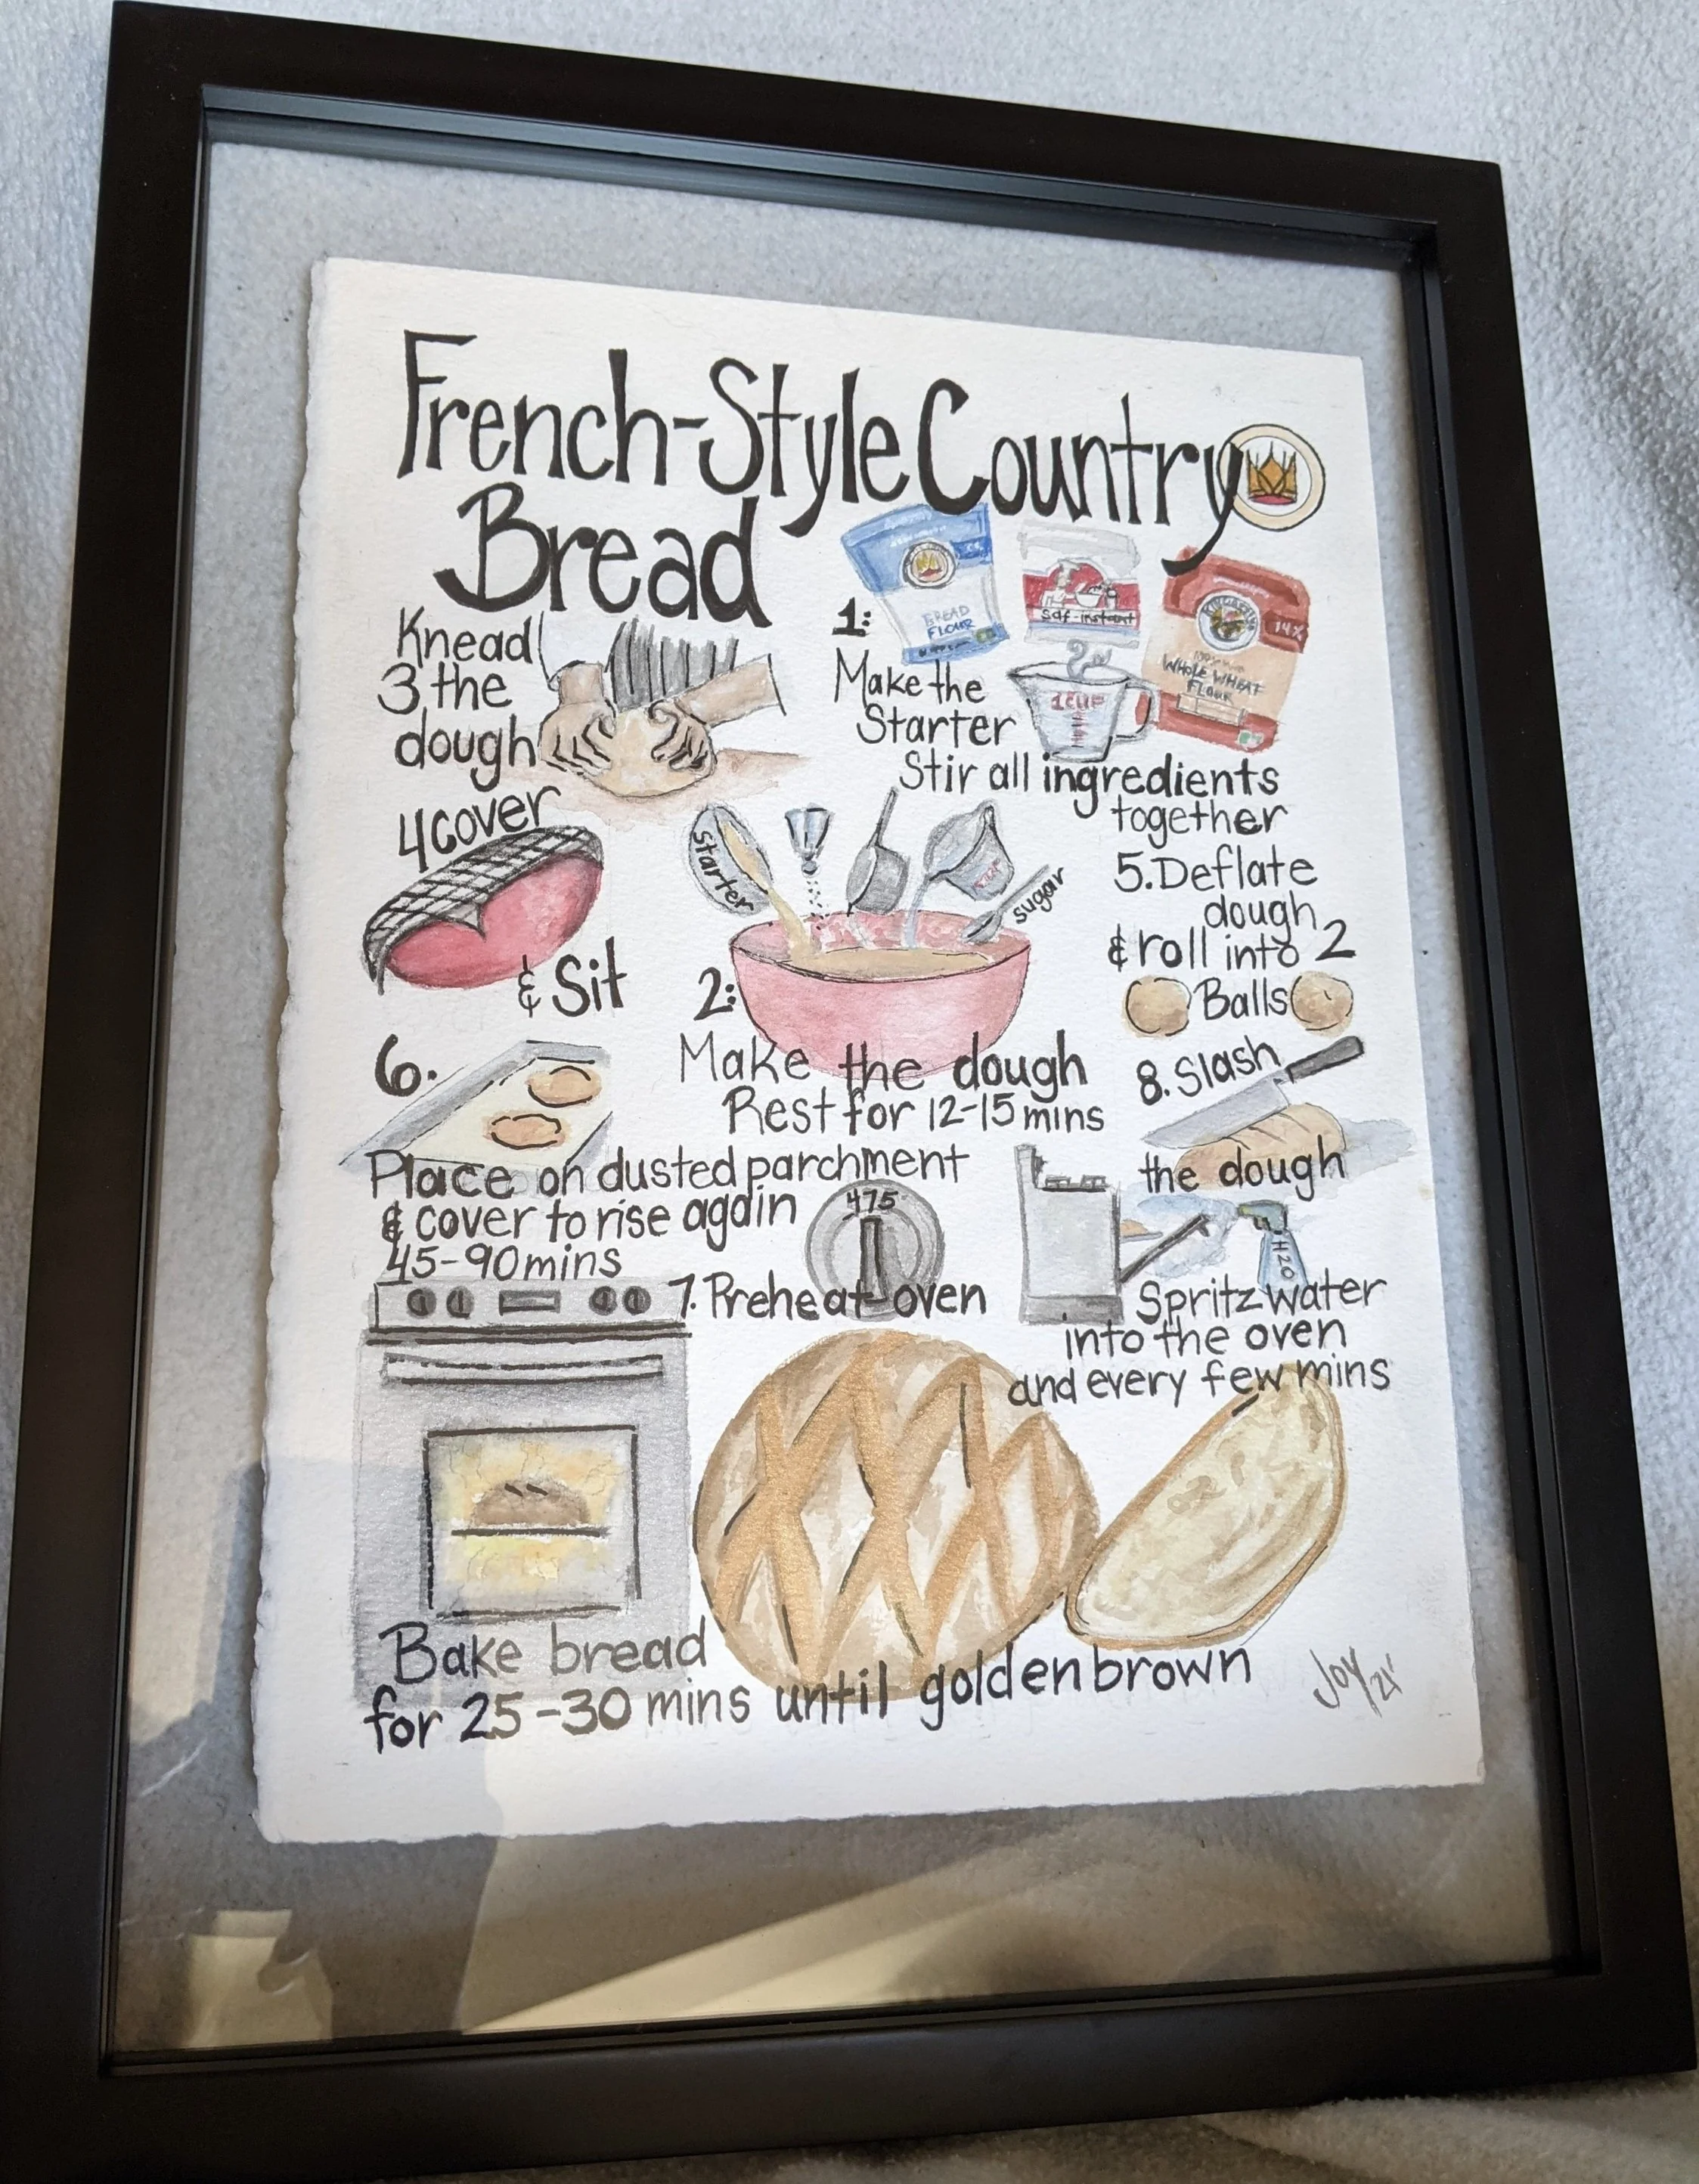 French-Style Country
Bread
1:
BREAD
FLOUR
saf-instant
14%
WHOLE WHEAT
FLOUR
1 CUP
Make the
Starter
Stir all ingredients
together
Starter
sugar
2:
Make the dough
Rest for 12-15 mins
Knead
3 the
dough
4 cover
& Sit
5. Deflate
dough
& roll into 2
Balls
6.
Place on dusted parchment
& cover to rise again
45-90 mins
475
7. Preheat oven
8. Slash
the dough
H2O
Spritz water
into the oven
and every few mins
Bake bread
for 25-30 mins until golden brown
Joy 21'